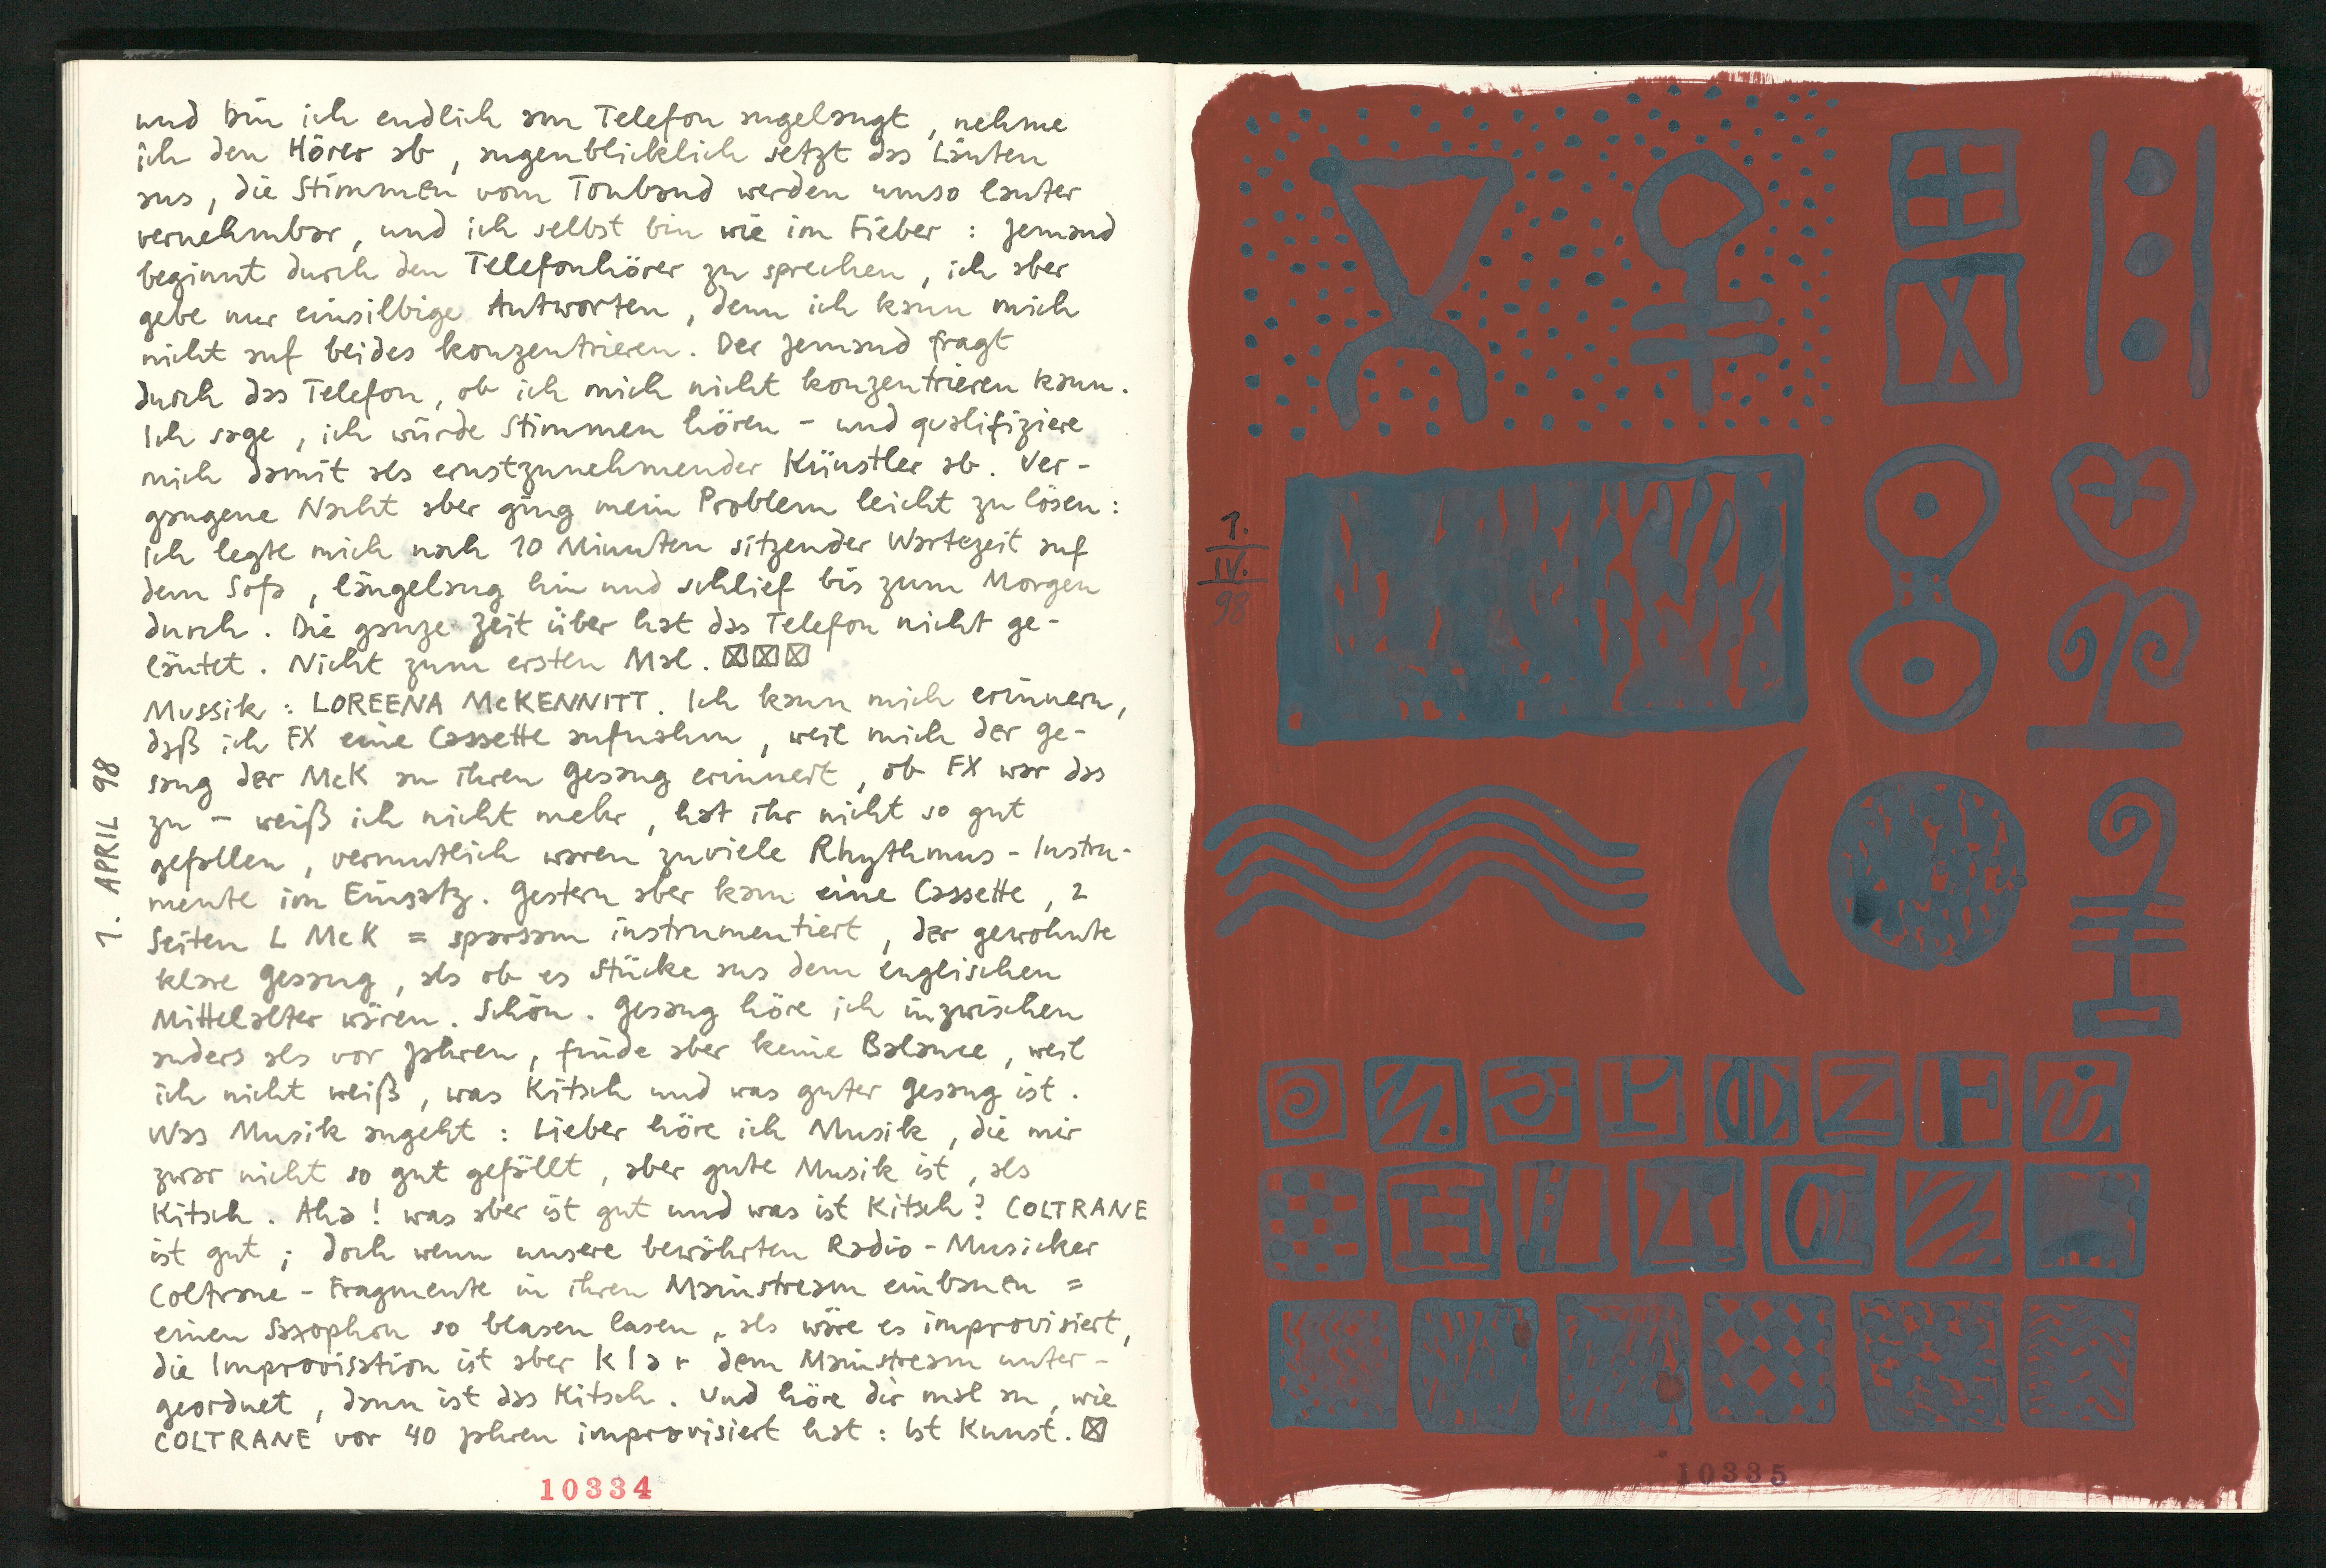 und bin ich endlich am Telefon angelangt, nehme
ich den Hörer ab, augenblicklich setzt das Läuten
aus, die Stimmen vom Tonband werden umso lauter
vernehmbar, und ich selbst bin wie im Fieber: Jemand
beginnt durch den Telefonhörer zu sprechen, ich aber
gebe nur einsilbige Antworten, denn ich kann mich
nicht auf beides konzentrieren. Der Jemand fragt
durch das Telefon, ob ich mich nicht konzentrieren kann.
Ich sage, ich würde Stimmen hören - und qualifiziere
mich damit als ernstzunehmender Künstler ab. Ver-
gangene Nacht aber ging mein Problem leicht zu lösen:
ich legte mich nach 10 Minuten sitzender Wartezeit auf
dem Sofa, längelang hin und schlief bis zum Morgen
durch. Die ganze Zeit über hat das Telefon nicht ge-
läutet. Nicht zum ersten Mal. ☒☒☒
Mussik: LOREENA McKENNITT. Ich kann mich erinnern,
daß ich FX eine Cassette aufnahm, weil mich der Ge-
sang der McK an ihren Gesang erinnert, ob FX war das
zu - weiß ich nicht mehr, hat ihr nicht so gut
gefallen, vermutlich waren zuviele Rhythmus-Instru-
mente im Einsatz. Gestern aber kam eine Cassette, 2
Seiten L McK = sparsam instrumentiert, der gewohnte
klare Gesang, als ob es Stücke aus dem englischen
Mittelalter wären. Schön. Gesang höre ich inzwischen
anders als vor Jahren, finde aber keine Balance, weil
ich nicht weiß, was Kitsch und was guter Gesang ist.
Was Musik angeht: Lieber höre ich Musik, die mir
zwar nicht so gut gefällt, aber gute Musik ist, als
Kitsch. Aha! was aber ist gut und was ist Kitsch? COLTRANE
ist gut; doch wenn unsere bewährten Radio-Musicker
Coltrane-Fragmente in ihren Mainstream einbauen =
einen Saxophon so blasen lasen, als wäre es improvisiert,
die Improvisation ist aber klar dem Mainstream unter-
geordnet, dann ist das Kitsch. Und höre dir mal an, wie
COLTRANE vor 40 Jahren improvisiert hat: Ist Kunst. ☒
1. APRIL 98
10334
1.
IV.
98
10335